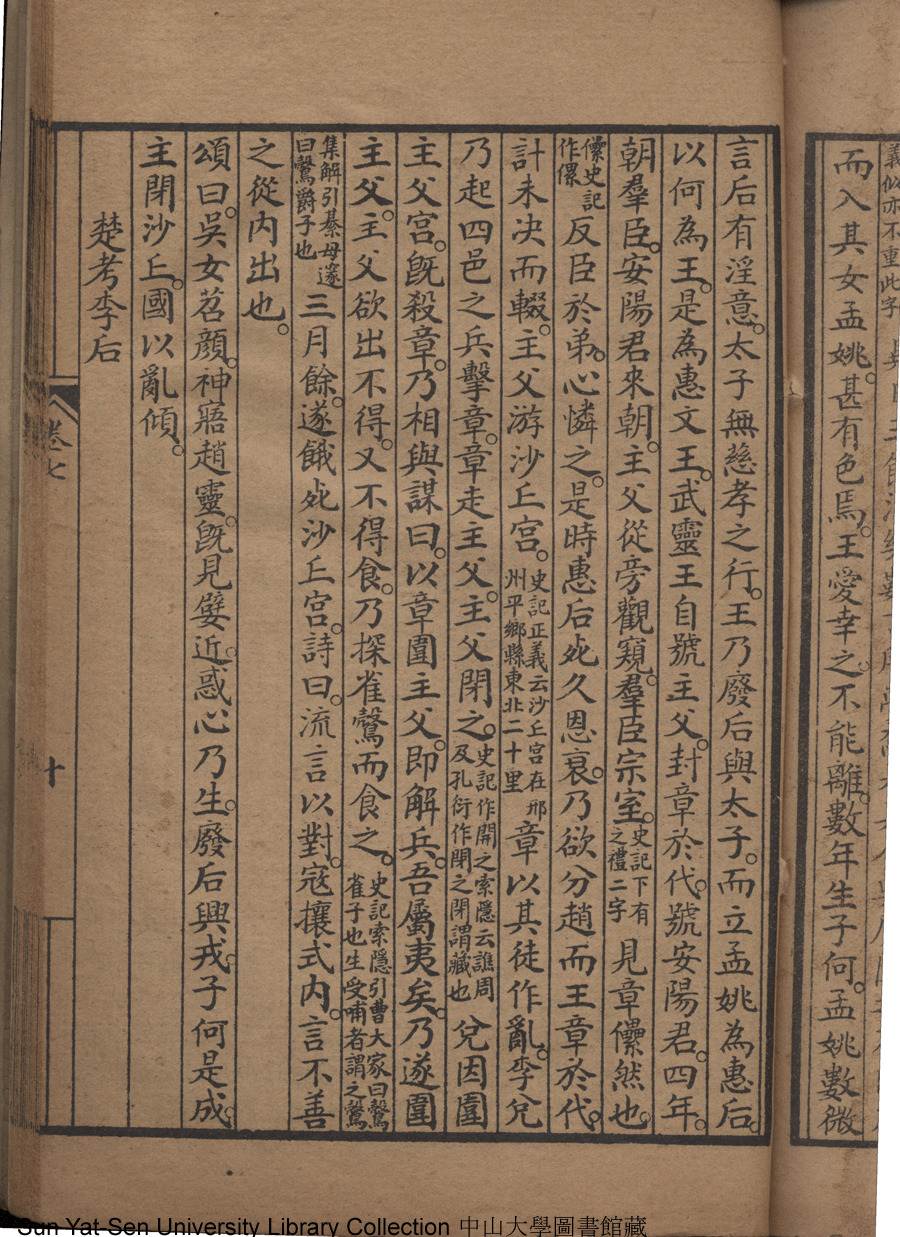 義似亦不重此字
而入其女孟姚甚有色焉王愛幸之不能離數年生子何孟姚數微
言后有淫意太子無慈孝之行王乃廢后與太子而立孟姚為惠后
以何為王是為惠文王武靈王自號主父封章於代號安陽君四年
朝羣臣安陽君來朝主父從旁觀窺羣臣宗室史記下有之禮二字見章儽然也
儽史記作傫反臣於弟心憐之是時惠后死久恩衰乃欲分趙而王章於代
計未決而輟主父游沙丘宮史記正義云沙丘宮在邢州平鄉縣東北二十里章以其徒作亂李兌
乃起四邑之兵擊章章走主父主父閉之史記作開之索隱云譙周及孔衍作閉之閉謂藏也兌因圍
主父宮旣殺章乃相與謀曰以章圍主父即解兵吾屬夷矣乃遂圍
主父主父欲出不得又不得食乃探雀鷇而食之史記索隱引曹大家曰鷇雀子也生受哺者謂之鷇
集解引綦毋邃曰鷇爵子也三月餘遂餓死沙丘宮詩曰流言以對寇攘式內言不善
之從內出也
頌曰吳女苕顏神寤趙靈旣見嬖近惑心乃生廢后興戎子何是成
主閉沙丘國以亂傾
楚考李后
卷七
十
Sun Yat-Sen University Library Collection 中山大學圖書館藏